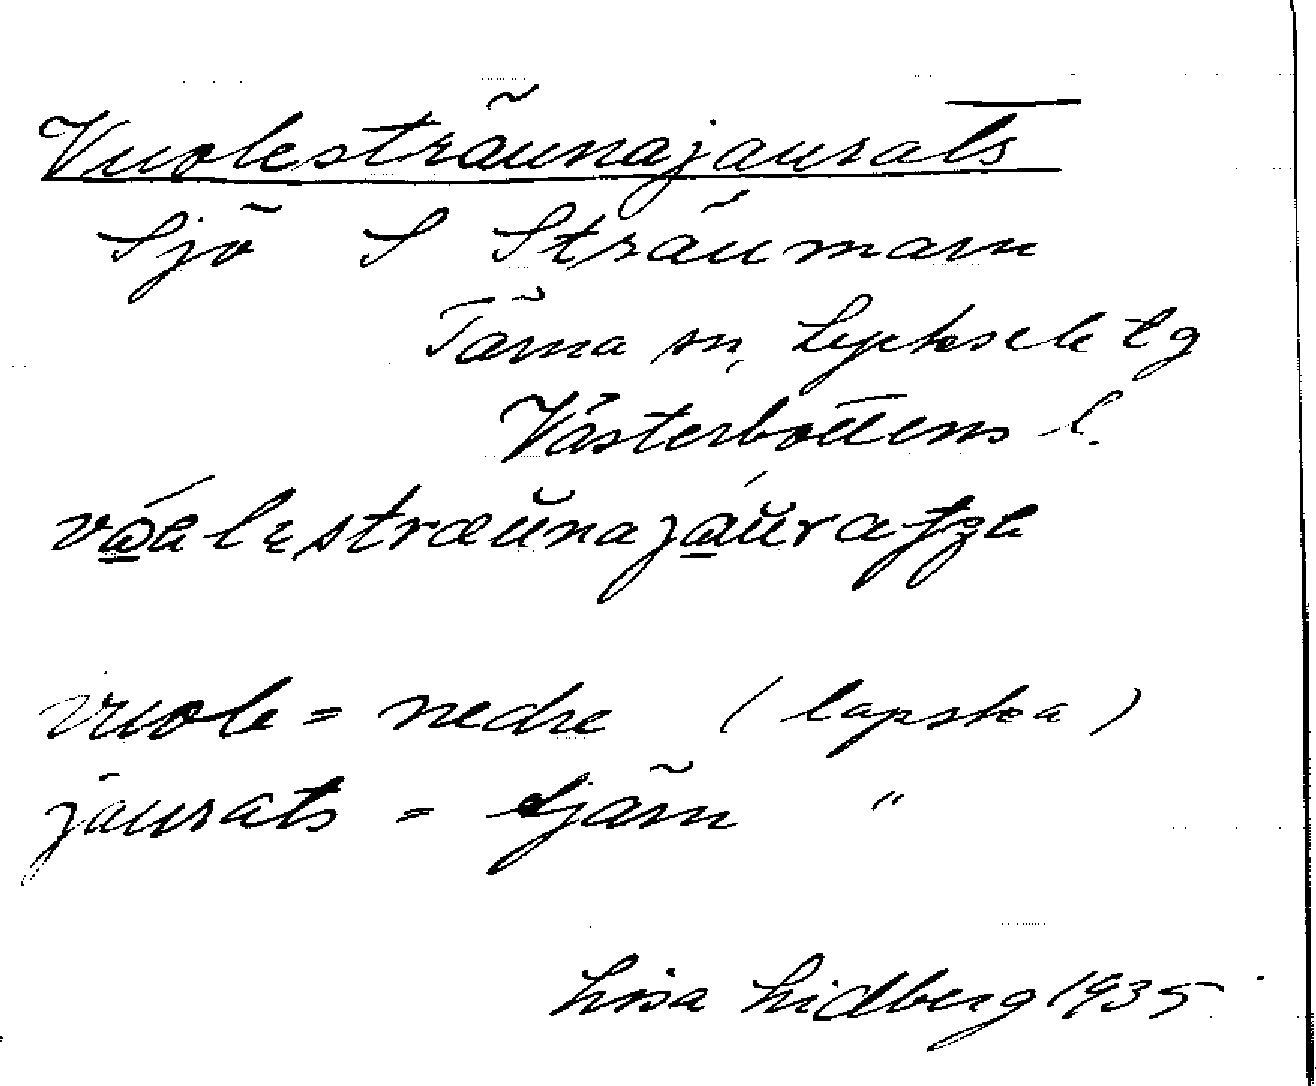 Vuolesträunajaurats
Sjö S Sträumarn
Tärna sn, Lycksele lg
Västerbottens l.
vuole = nedre (lapska)
jaurats = tjärn "
Lisa Lidberg 1935